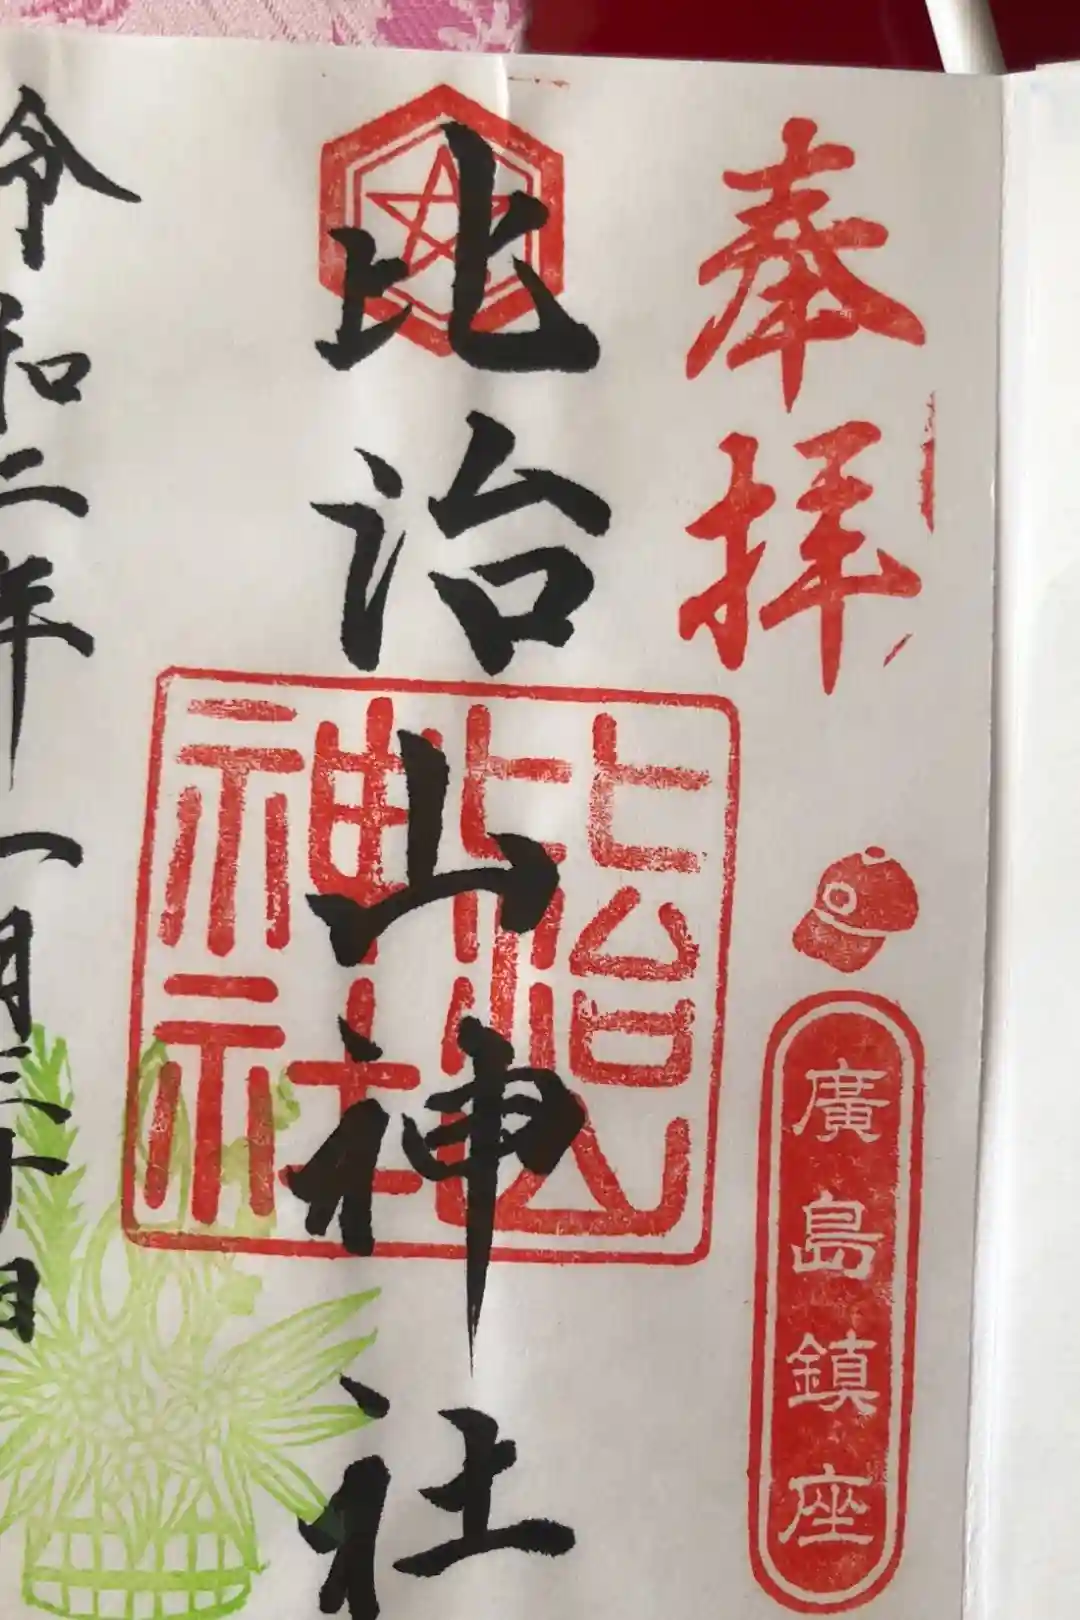 奉拝
廣島鎮座
比治山神社
比治山神社
令和二年一月三十日